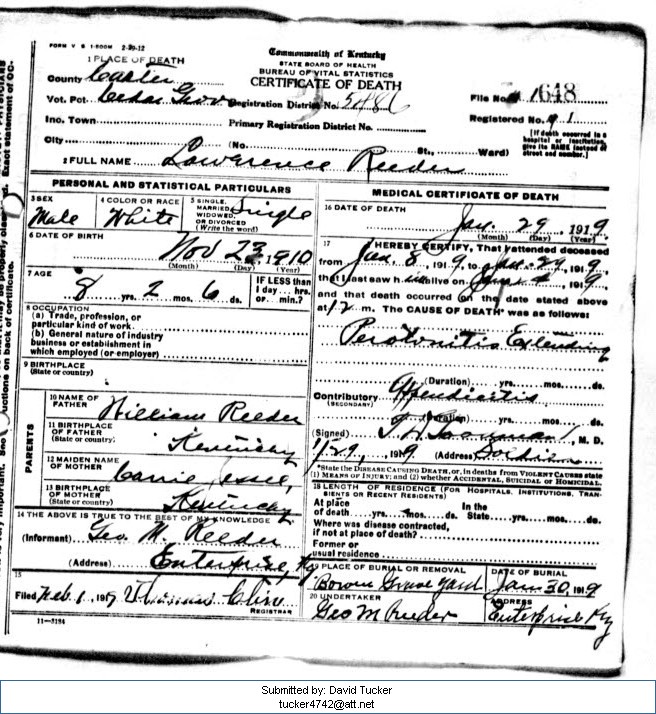 FORM V S 1-500M 2-29-12
Commonwealth of Kentucky
STATE BOARD OF HEALTH
BUREAU OF VITAL STATISTICS
CERTIFICATE OF DEATH
1 PLACE OF DEATH
County Carter
Vot. Pct. Cedar Grove Registration District No. 5486
File No. 1648
Inc. Town Primary Registration District No.
Registered No. 1
City (No. St., Ward)
[If death occurred in a hospital or institution, give its NAME instead of street and number.]
2 FULL NAME Lawerence Reeder
PERSONAL AND STATISTICAL PARTICULARS
3 SEX Male
4 COLOR OR RACE White
5 SINGLE, MARRIED, WIDOWED, OR DIVORCED (Write the word) Single
6 DATE OF BIRTH Nov 23, 1910
(Month) (Day) (Year)
7 AGE 8 yrs. 2 mos. 6 ds.
IF LESS than 1 day hrs. or min.?
8 OCCUPATION
(a) Trade, profession, or particular kind of work
(b) General nature of industry business or establishment in which employed (or employer)
9 BIRTHPLACE
(State or country)
PARENTS
10 NAME OF FATHER William Reeder
11 BIRTHPLACE OF FATHER (State or country) Kentucky
12 MAIDEN NAME OF MOTHER Carrie Jessee,
13 BIRTHPLACE OF MOTHER (State or country) Kentucky
14 THE ABOVE IS TRUE TO THE BEST OF MY KNOWLEDGE
(Informant) Geo. M. Reeder
(Address) Enterprise, Ky
15
Filed Feb 1, 1919 Cline
REGISTRAR
11-3184
MEDICAL CERTIFICATE OF DEATH
16 DATE OF DEATH
Jan. 29, 1919
(Month) (Day) (Year)
17 I HEREBY CERTIFY, That I attended deceased
from Jan. 8, 1919, to Jan. 29, 1919,
that I last saw him alive on 1919,
and that death occurred on the date stated above
at 12 m. The CAUSE OF DEATH* was as follows:
Perotonitis Extending
(Duration) yrs. mos. ds.
Contributory Appendicitis
(SECONDARY)
(Duration) yrs. mos. ds.
(Signed) M. D.
1/29, 1919 (Address) Soldier
*State the DISEASE CAUSING DEATH, or, in deaths from VIOLENT CAUSES state
(1) MEANS OF INJURY; and (2) whether ACCIDENTAL, SUICIDAL or HOMICIDAL.
18 LENGTH OF RESIDENCE (FOR HOSPITALS, INSTITUTIONS, TRANSIENTS OR RECENT RESIDENTS)
At place of death yrs. mos. ds. In the State yrs. mos. ds.
Where was disease contracted,
if not at place of death?
Former or
usual residence
19 PLACE OF BURIAL OR REMOVAL
Bowen Grave Yard
DATE OF BURIAL
Jan 30, 1919
20 UNDERTAKER
Geo M Reeder
ADDRESS
Enterprise Ky
Submitted by: David Tucker
tucker4742@att.net